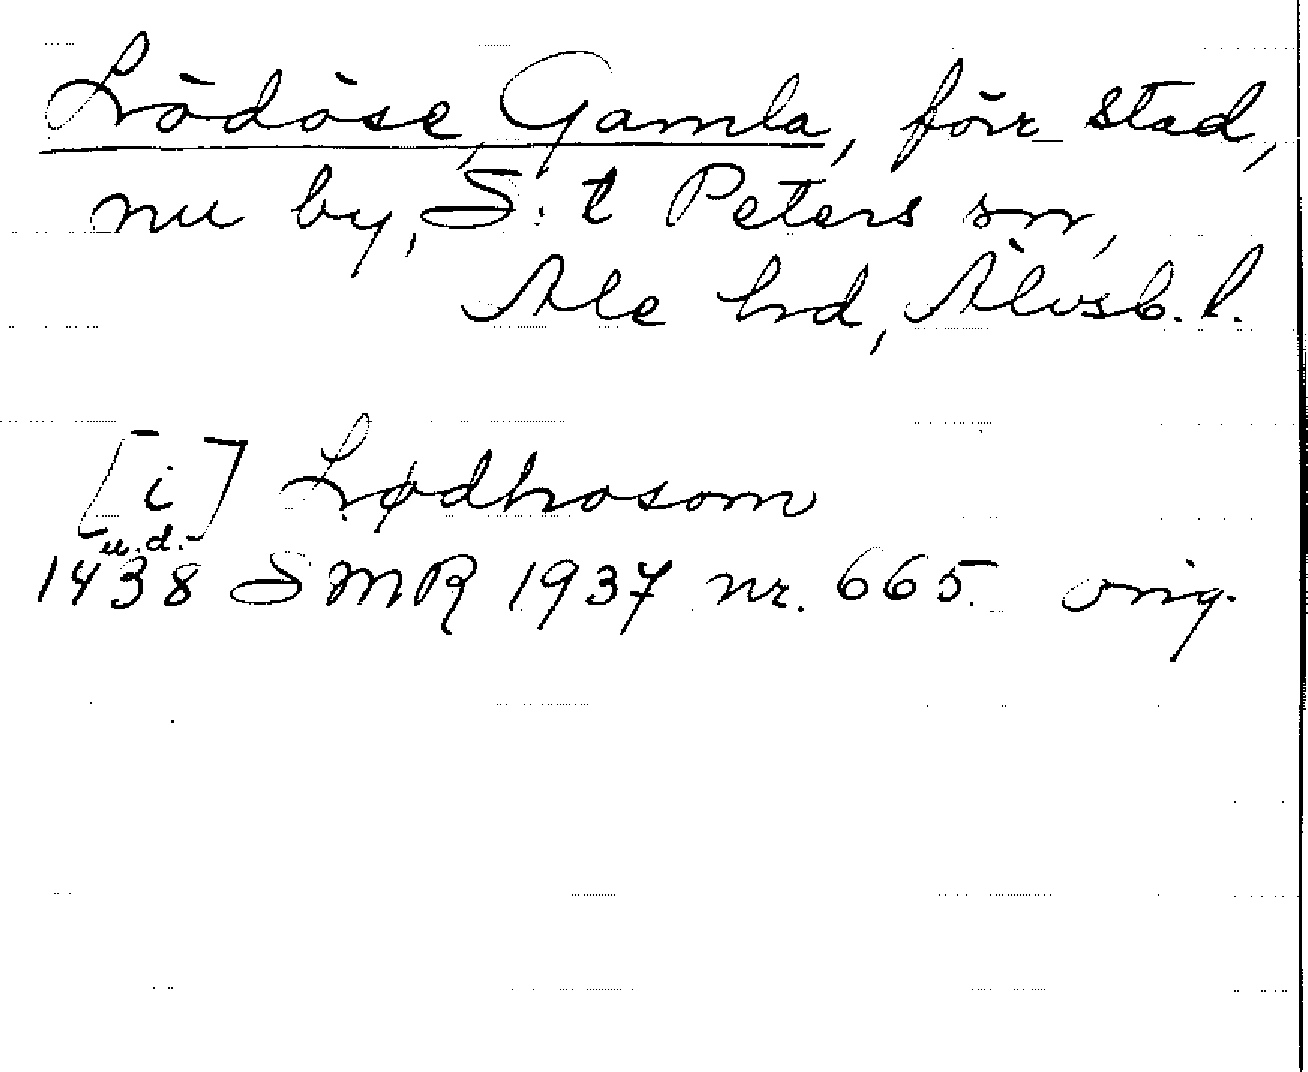 Lödöse, Gamla, förr stad,
nu by, S:t Peters sn,
Ale hd, Älvsb. l.
[i] Lødhosom
u.d.
1438 SMR 1937 nr. 665 orig.